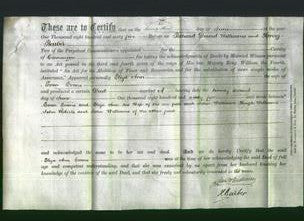 These are to Certify that on the day of June
One Thousand eight hundred and forty five Before us Edward Girard Williamson and Henry
Barber
Two of the Perpetual Commissioners appointed for the
of Carnarvon for taking the Acknowledgments of Deeds by Married Women
to an Act passed in the third and fourth years of the reign of His late Majesty King William the Fourth,
Intituled "An Act for the Abolition of Fines and Recoveries, and for the substitution of more simple modes of
Assurance," Appeared personally Eliza Ann the wife of
Owen Evans
and produced a certain Deed marked A bearing date
day of June One thousand eight hundred and forty
Owen Evans and Eliza Ann his Wife of the one part and John Williams Hugh Williams
John Roberts and John Williams of the other part
and acknowledged the same to be her act and deed. And we do hereby Certify that the said
Eliza Ann Evans was at the time of her acknowledging the said Deed of full
age and competent understanding, and that she was examined by us apart from her husband touching her
knowledge of the contents of the said Deed, and that she freely and voluntarily consented to the same.
H Barber